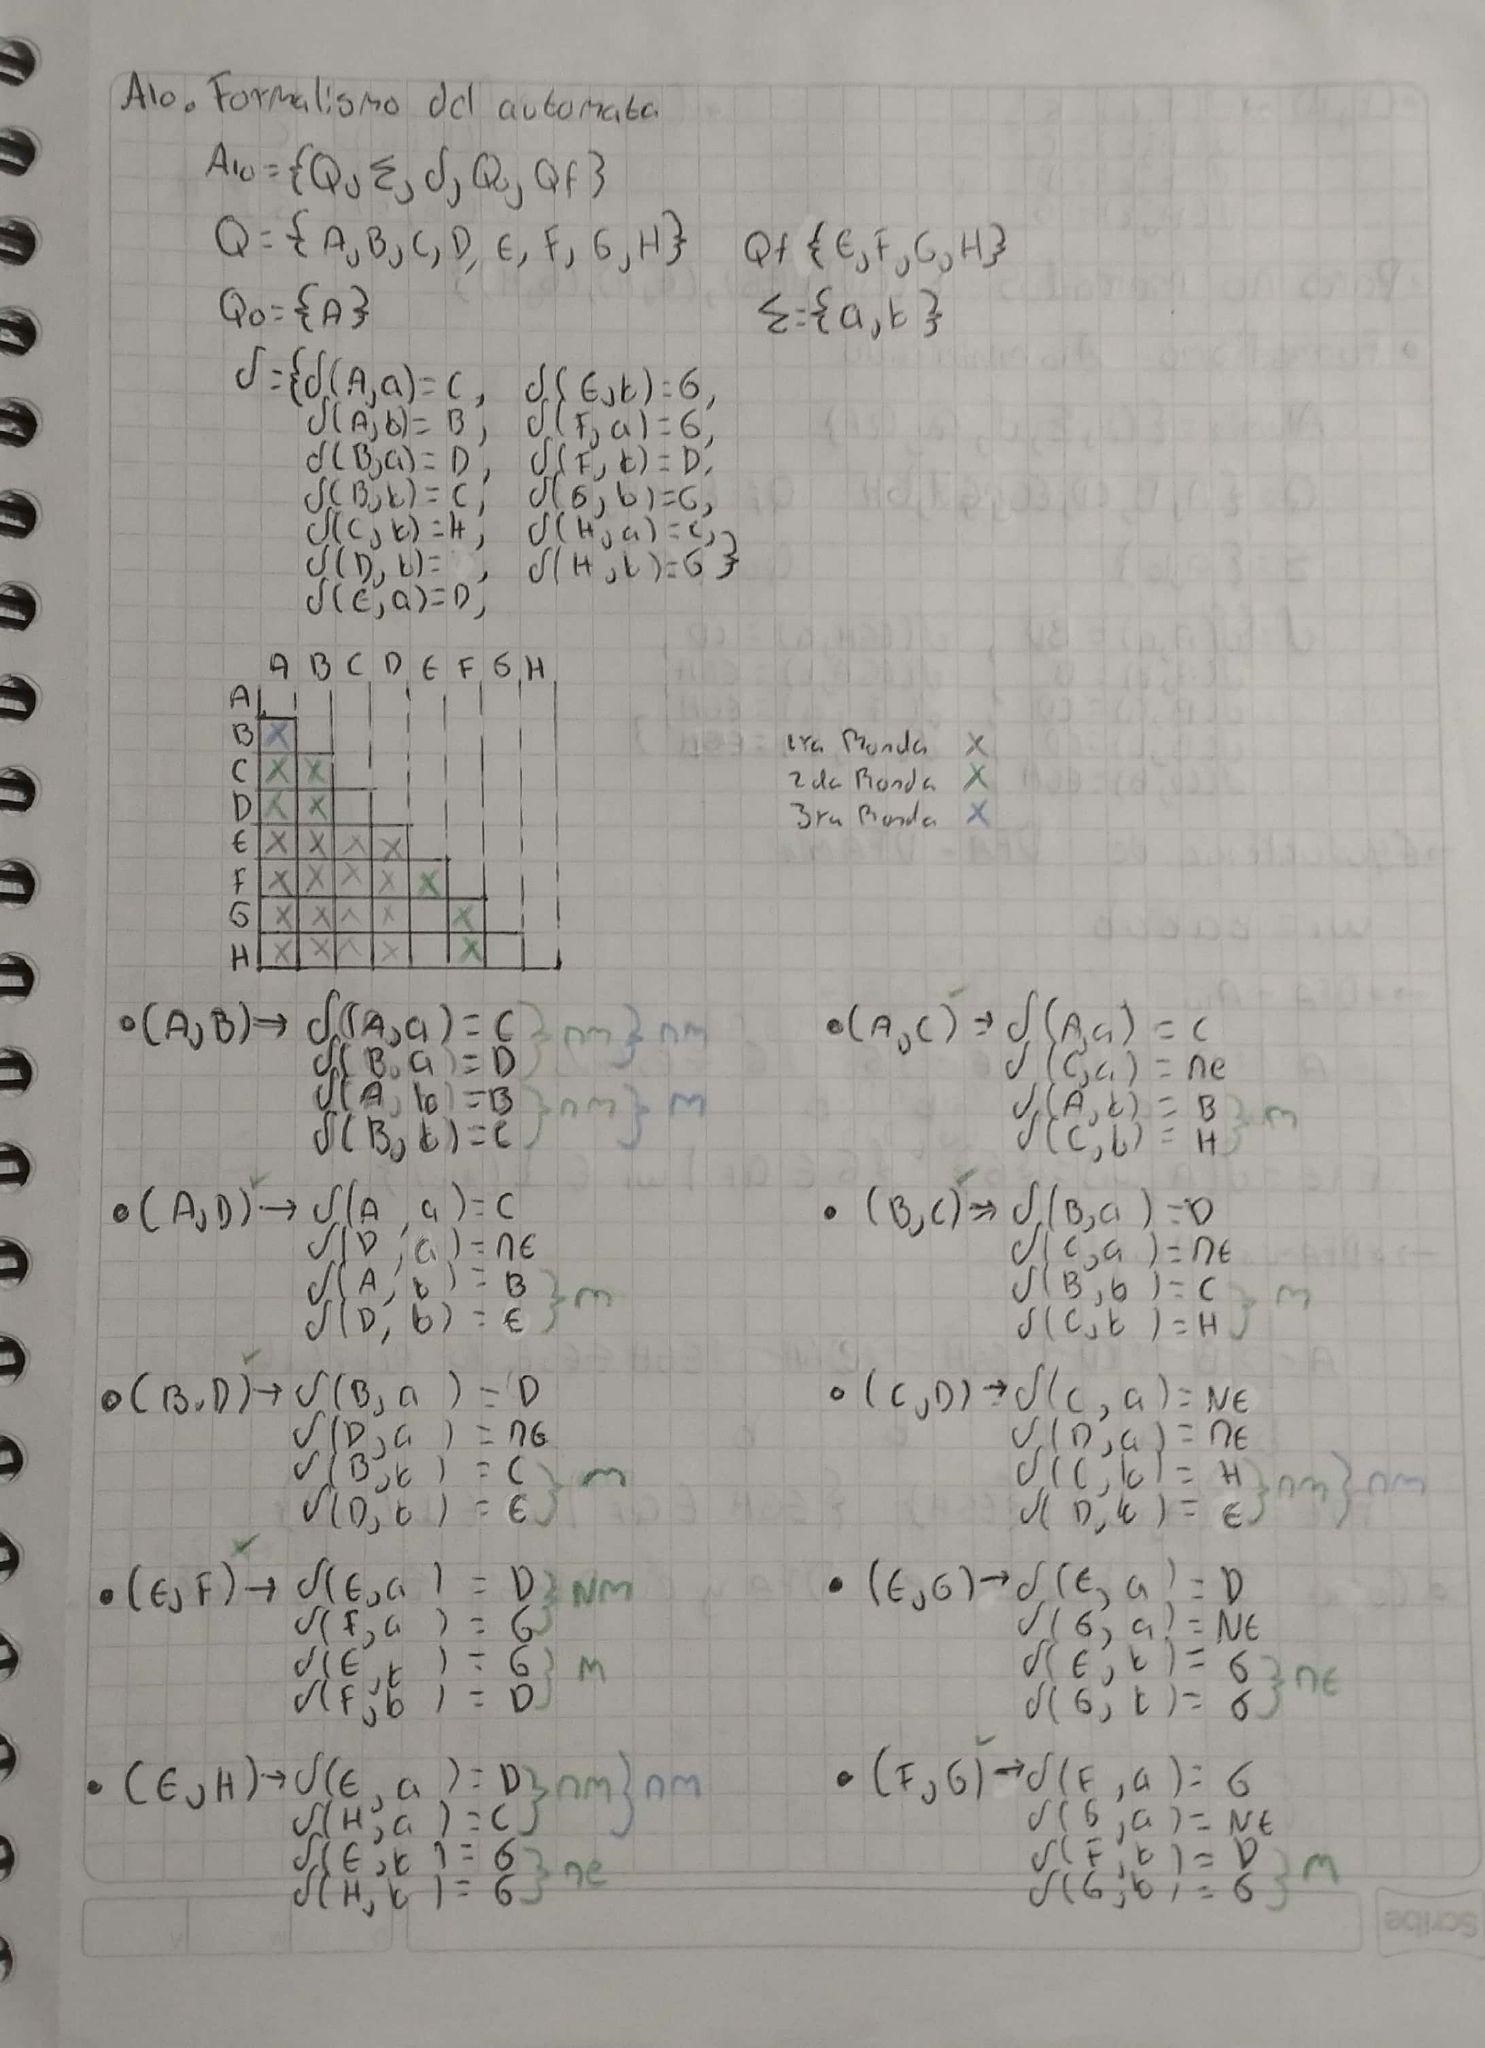 A10. Formalismo del automata
A10 = {Q, Σ, δ, Q0, Qf}
Q = {A, B, C, D, E, F, G, H} Qf {E, F, G, H}
Q0 = {A} Σ = {a, b}
δ = {δ(A,a) = C, δ(E,b) = G,
δ(A,b) = B, δ(F,a) = G,
δ(B,a) = D, δ(F,b) = D,
δ(B,b) = C, δ(G,b) = G,
δ(C,b) = H, δ(H,a) = C,
δ(D,b) = , δ(H,b) = G}
δ(E,a) = D,
A B C D E F G H
A
B X
C X X
D X X
E X X X X
F X X X X X
G X X X X X
H X X X X X
1ra Ronda X
2da Ronda X
3ra Ronda X
• (A,B) → δ(A,a) = C } nm } nm
δ(B,a) = D
δ(A,b) = B } nm } m
δ(B,b) = C
• (A,C) ✓ → δ(A,a) = C
δ(C,a) = ne
δ(A,b) = B } m
δ(C,b) = H
• (A,D) ✓ → δ(A,a) = C
δ(D,a) = nE
δ(A,b) = B } m
δ(D,b) = E
• (B,C) ✓ → δ(B,a) = D
δ(C,a) = nE
δ(B,b) = C } m
δ(C,b) = H
• (B,D) ✓ → δ(B,a) = D
δ(D,a) = nE
δ(B,b) = C } m
δ(D,b) = E
• (C,D) → δ(C,a) = NE
δ(D,a) = nE
δ(C,b) = H } nm } nm
δ(D,b) = E
• (E,F) ✓ → δ(E,a) = D } Nm
δ(F,a) = G
δ(E,b) = G } m
δ(F,b) = D
• (E,G) → δ(E,a) = D
δ(G,a) = NE
δ(E,b) = G } nE
δ(G,b) = G
• (E,H) → δ(E,a) = D } nm } nm
δ(H,a) = C
δ(E,b) = G } ne
δ(H,b) = G
• (F,G) ✓ → δ(F,a) = G
δ(G,a) = NE
δ(F,b) = D } m
δ(G,b) = G
Scribe